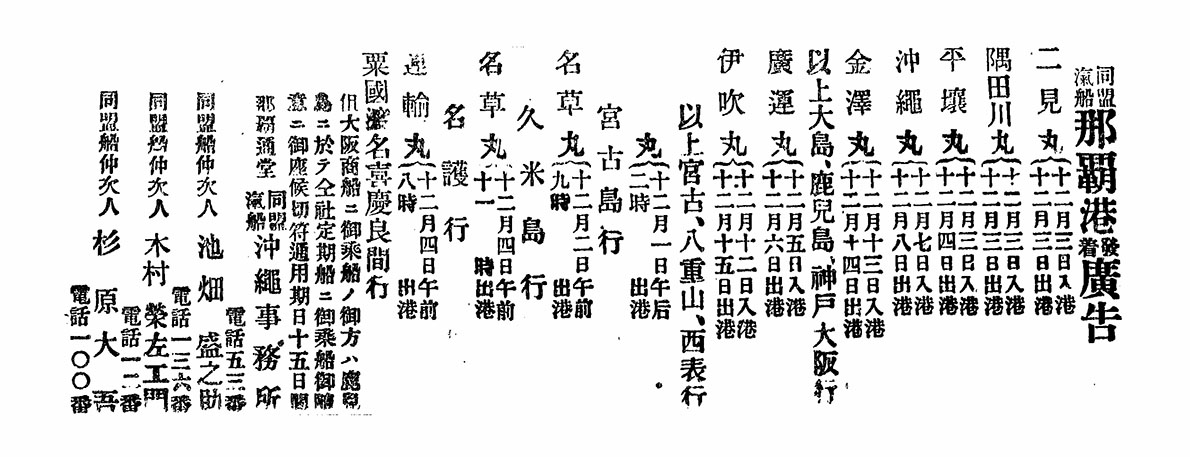 同盟汽船那覇港発着廣告
二見丸 十二月三日入港 十二月三日出港
隅田川丸 十二月三日入港 十二月三日出港
平壤丸 十二月三日入港 十二月四日出港
沖繩丸 十二月七日入港 十二月八日出港
金澤丸 十二月十三日入港 十二月十四日出港
以上大島、鹿兒島、神戸大阪行
廣運丸 十二月五日入港 十二月六日出港
伊吹丸 十二月十二日入港 十二月十五日出港
以上宮古、八重山、西表行
丸 十二月一日午后二時出港
宮古島行
名草丸 十二月二日午前九時出港
久米島行
名草丸 十二月四日午前十一時出港
名護行
運輸丸 十二月四日午前八時出港
粟國渡名喜慶良間行
但大阪商船ニ御乘船ノ御方ハ鹿兒
島ニ於テ仝社定期船ニ御乘船御隨
意ニ御座候切符通用期日十五日間
那覇通堂 同盟汽船沖繩事務所
電話五三番
同盟船仲次人 池畑盛之助
電話一三六番
同盟船仲次人 木村榮左工門
電話一二番
同盟船仲次人 杉原大吾
電話一〇〇番